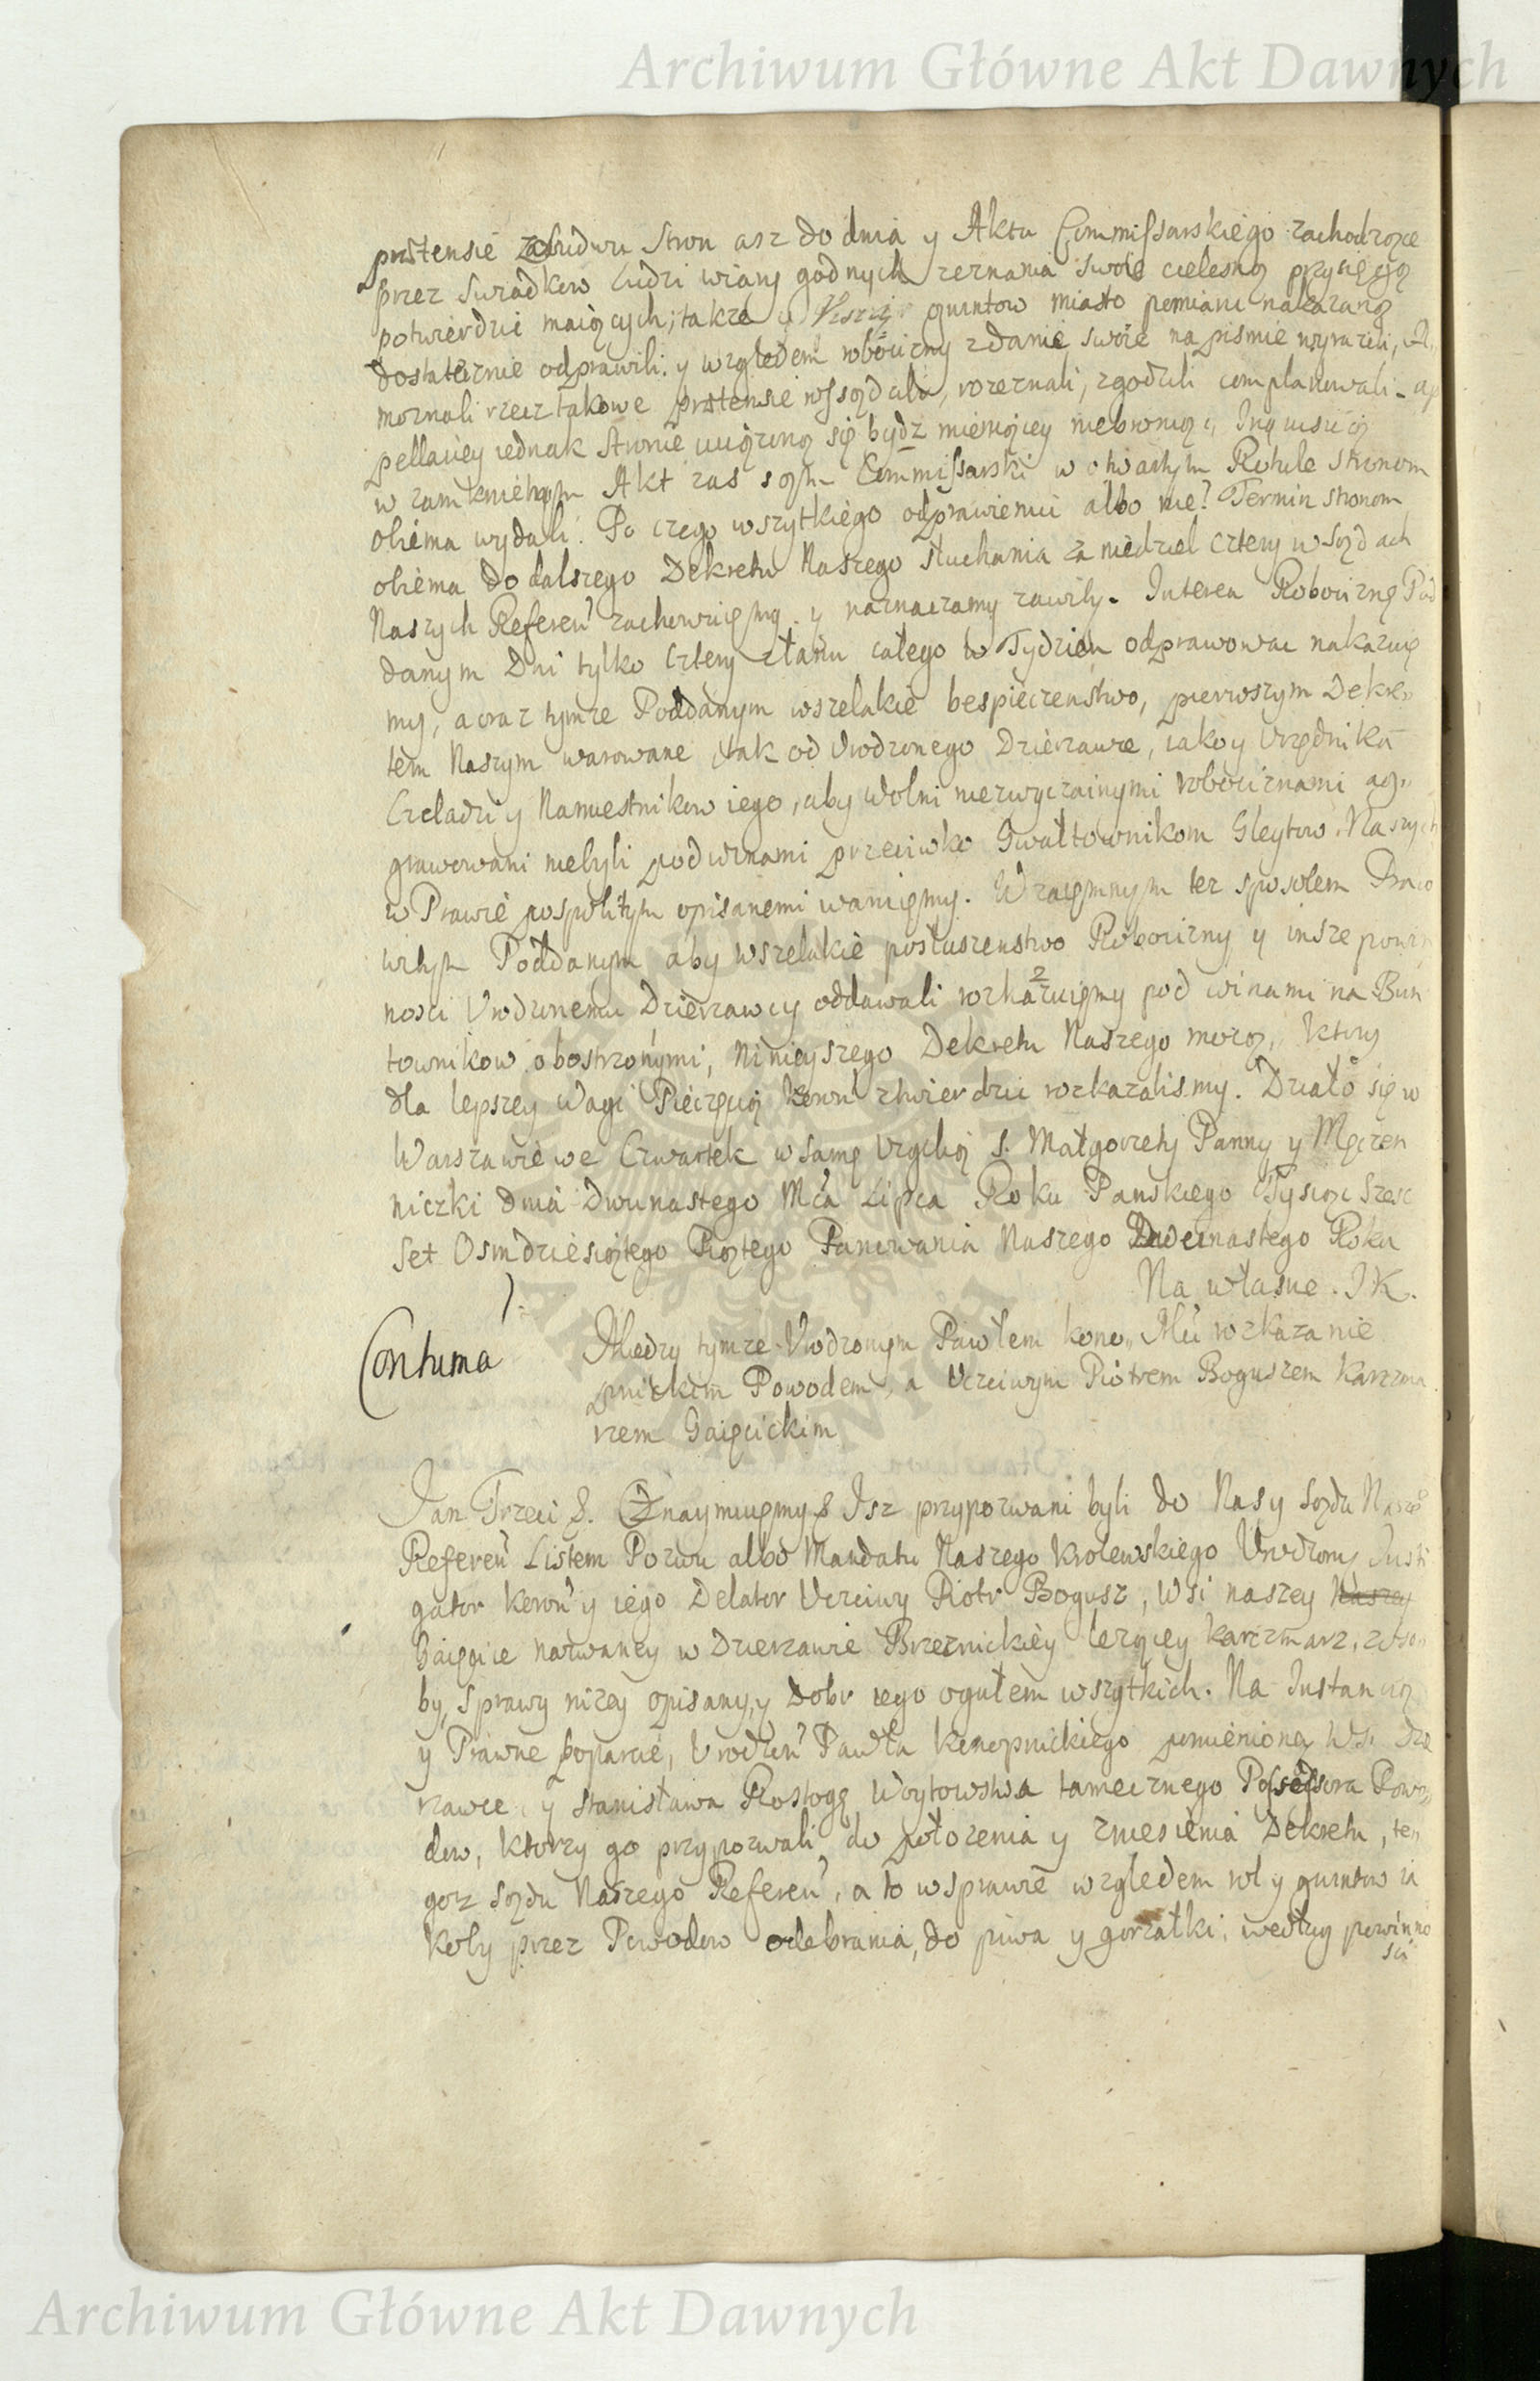 Archiwum Główne Akt Dawnych
prætensie zobudwu stron asz do dnia y Aktu Commissarskiego zachodzące
przez swiadkow ludzi wiary godnych zeznania swoie cielesną przysięgą
potwierdzic maiących; takze y gruntow miasto pomiaru nakazaną
dostatecznie odprawili. y względem robocizny zdanie swoie na pismie wyrazili,
moznali rzecz takowe prætensie ossądzili, rozeznali, zgodzili complanowali. ap
pellaciey iednak stronie uciązoną się bydz mieniącey niebroniąc, Inquisitią
w zamknietym Akt zas sąm Commissarski w otwartym Rotule stronom
obiema wydali. Po czego wszytkiego odprawieniu albo nie? Termin stronom
obiema do dalszego Dekretu Naszego słuchania za niedziel cztery w sądach
Naszych Referen zachowuięmy. y naznaczamy zawity. Interea Robociznę Pod
danym Dni tylko cztery złanu całego w Tydzien odprawowac nakazuię
my, a oraz tymze Poddanym wszelakie bespieczenstwo, pierwszym Dekre„
tem Naszym warowane, tak od Urodzonego Dzierzawce, iako y Urzędnika
Czeladzi y Namiestnikow iego, aby wolni niezwyczainymi robociznami ag„
grawowani niebyli pod winami przeciwko Gwałtownikom Gleytow Naszych
w Prawie pospolitym opisanemi waruięmy. Wzaięmnym tez sposobem Praco
witym Poddanym aby wszelakie posłuszenstwo Robocizny y insze powin
nosci Urodzonemu Dzierzawcy oddawali rozkazuięmy pod winami na Bun
townikow obostrzonymi, Ninieyszego Dekretu Naszego mocą, ktory
dla lepszey Wagi Pieczęcią koron ztwierdzic rozkazalismy. Działo się w
Warszawie we Czwartek w samę Uroczys S. Małgorzety Panny y Męczen
niczki dnia Dwunastego Mca Lipca Roku Panskiego Tysiąc Szesc
set Osmdziesiątego Piątego Panowania Naszego Dwunastego Roku
Na własne J K.
Contuma
Miedzy tymze Urodzonym Pawłem kono„ Mci rozkazanie
pnickim Powodem, a Uczciwym Piotrem Boguszem karczma
rzem Gaięcickim
Jan Trzeci &. Oznaymuięmy & Isz przypozwani byli do Nas y Sądu Naszego
Referen Listem Pozwu albo Mandatu Naszego krolewskiego Urodzony Insti
gator koron y iego Delator Uczciwy Piotr Bogusz, Wsi naszey Naszey
Gaięcice nazwaney w Dzierzawie Brzeznickiey lezącey karczmarz, z oso
by, sprawy nizey opisany, y Dobr iego ogułem wszytkich. Na Instancią
y Prawne poparcie, Urodzen Pawła konopnickiego pomienioney Wsi Dzie
rzawce, y Stanisława Rostogę Woytowstwa tamecznego Possessora Powo
dow, ktorzy go przypozwali do połozenia y zniesienia Dekretu, te
goz Sądu Naszego Referen, a to w sprawie względem rol y gruntow ia
koby przez Powodow odebrania, do piwa y gorzałki, według powinno
sci
Archiwum Główne Akt Dawnych